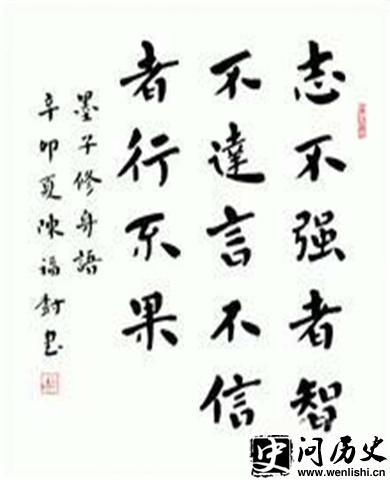 志不强者智
不達言不信
者行不果
墨子修身語
辛卯夏陳福書
问历史
www.wenlishi.cn